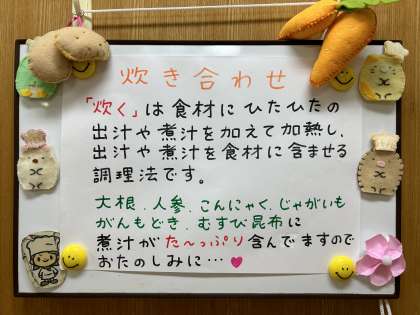 炊き合わせ
「炊く」は食材にひたひたの
出汁や煮汁を加えて加熱し、
出汁や煮汁を食材に含ませる
調理法です。
大根、人参、こんにゃく、じゃがいも
がんもどき、むすび昆布に
煮汁がた〜っぷり含んでますので
おたのしみに…♥